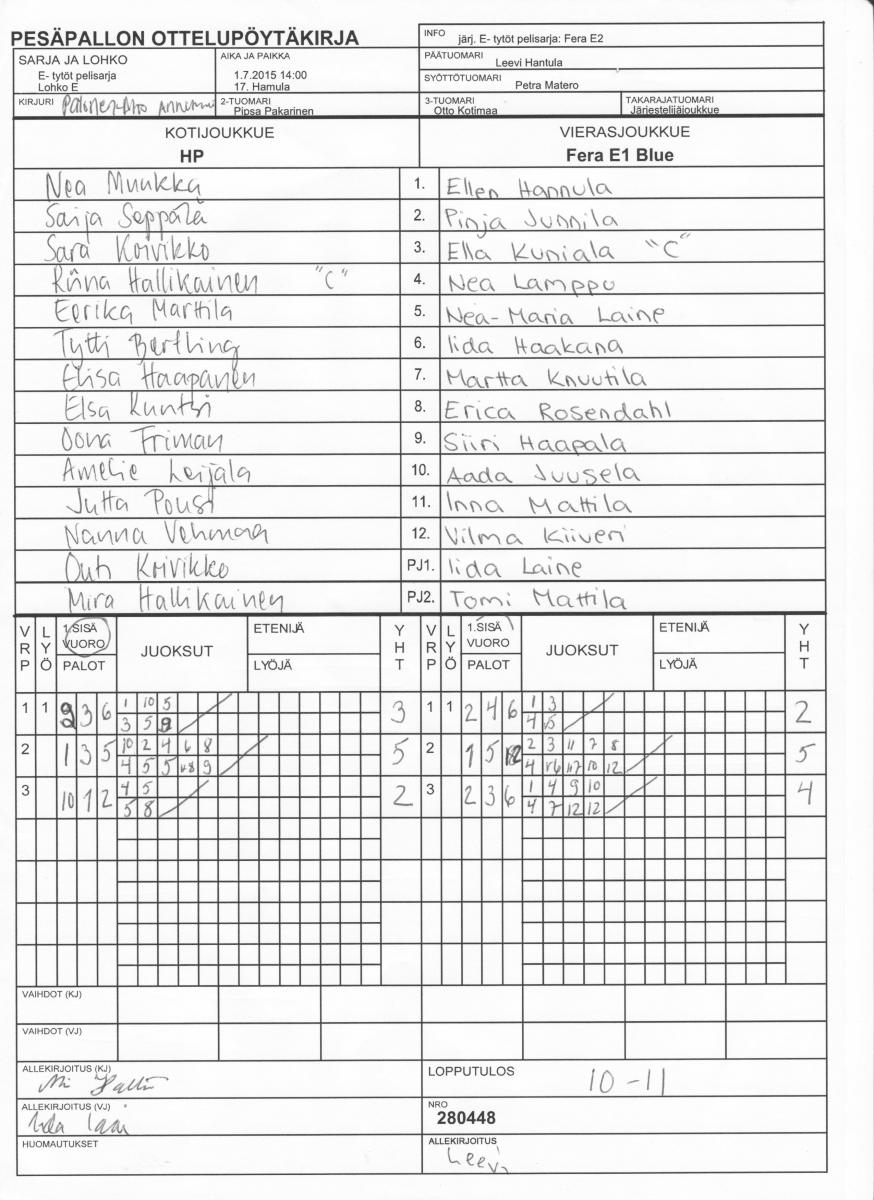 PESÄPALLON OTTELUPÖYTÄKIRJA
INFO järj. E- tytöt pelisarja: Fera E2
SARJA JA LOHKO
E- tytöt pelisarja
Lohko E
AIKA JA PAIKKA
1.7.2015 14:00
17. Hamula
PÄÄTUOMARI
Leevi Hantula
SYÖTTÖTUOMARI
Petra Matero
KIRJURI
2-TUOMARI
Pipsa Pakarinen
3-TUOMARI
Otto Kotimaa
TAKARAJATUOMARI
Järjestelijäjoukkue
KOTIJOUKKUE
HP
VIERASJOUKKUE
Fera E1 Blue
Nea Muukka 1. Ellen Hannula
Saija Seppälä 2. Pinja Junnila
Sara Koivikko 3. Ella Kuniala "C"
Riina Hallikainen "C" 4. Nea Lamppu
Eerika Marttila 5. Nea-Maria Laine
Tytti Bertling 6. Iida Haakana
Elisa Haapanen 7. Martta Knuutila
Elsa Kuntsi 8. Erica Rosendahl
Oona Friman 9. Siiri Haapala
Amelie Leijala 10. Aada Juusela
Jutta Pousi 11. Inna Mattila
Nanna Vehmaa 12. Vilma Kiiveri
Outi Koivikko PJ1. Iida Laine
Mira Hallikainen PJ2. Tomi Mattila
VRP LYÖ 1.SISÄ VUORO PALOT JUOKSUT ETENIJÄ LYÖJÄ YHT VRP LYÖ 1.SISÄ VUORO PALOT JUOKSUT ETENIJÄ LYÖJÄ YHT
1 1 3 6 1 10 5 3 1 1 2 4 6 1 3 2
3 5 9 4 5
2 1 3 5 10 2 4 6 8 5 2 1 5 2 3 11 7 8 5
4 5 5 8 9 4 6 7 10 12
3 10 1 2 4 5 2 3 2 3 6 1 4 9 10 4
5 8 4 7 12 12
VAIHDOT (KJ)
VAIHDOT (VJ)
ALLEKIRJOITUS (KJ)
LOPPUTULOS 10-11
ALLEKIRJOITUS (VJ)
NRO
280448
HUOMAUTUKSET
ALLEKIRJOITUS
Leevi